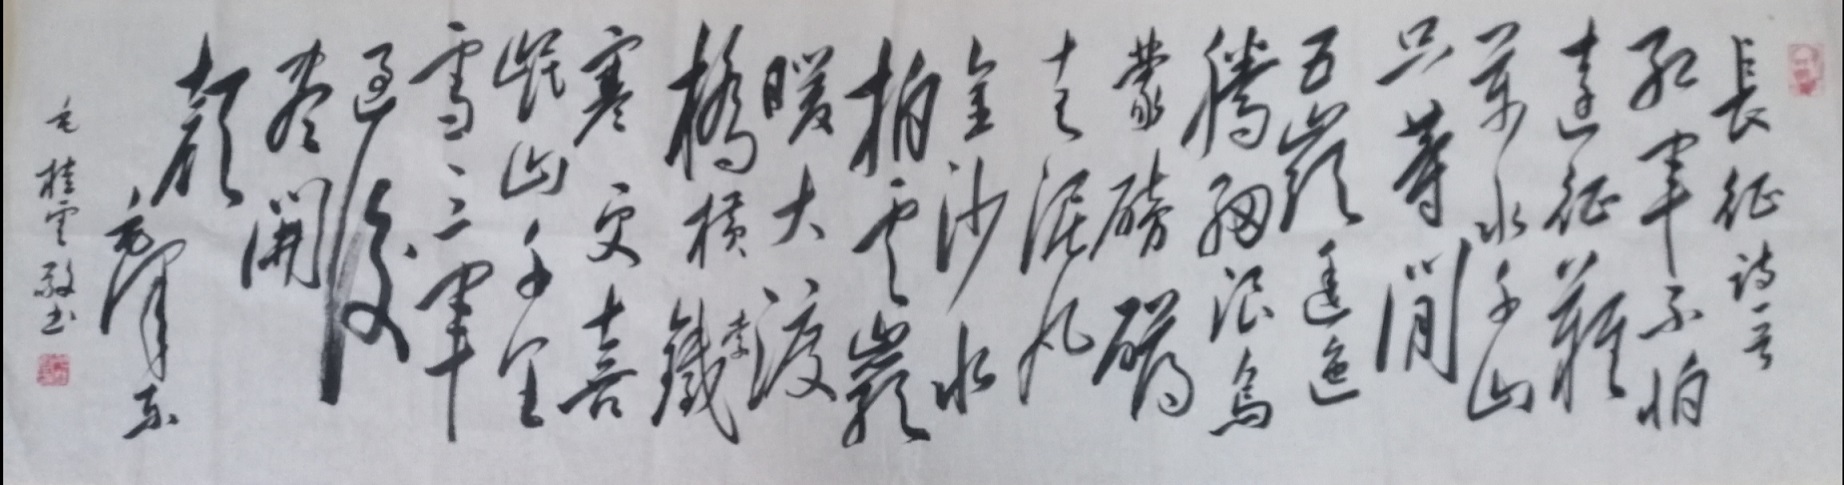 長征诗一首
红軍不怕
遠征難
萬水千山
只等閒
五嶺逶迤
騰細浪烏
蒙磅礴
走泥丸
金沙水
拍雲巖
暖大渡
橋橫鐵索
寒更喜
岷山千里
雪三軍
過後
盡開
顏
毛澤東
毛桂雲敬书